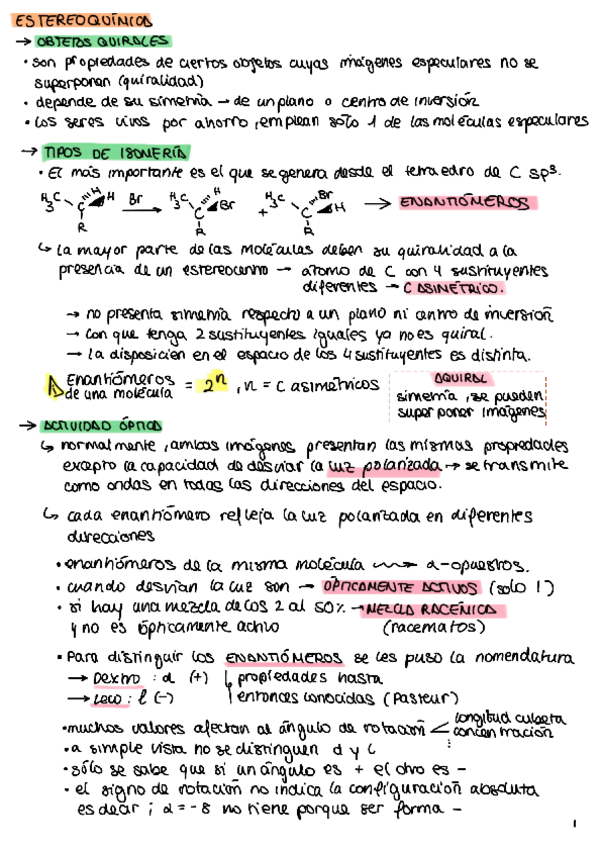 ESTEREOQUÍMICA
→ OBJETOS QUIRALES
• son propiedades de ciertos objetos cuyas imágenes especulares no se
superponen (quiralidad)
• depende de su simetría → de un plano o centro de inversión
• Los seres vivos por ahorro, emplean sólo 1 de las moléculas especulares
→ TIPOS DE ISOMERÍA
• El más importante es el que se genera desde el tetraedro de C sp³.
H₃C C H H R Br → H₃C C H Br R + H₃C C Br H R → ENANTIÓMEROS
↳ La mayor parte de las moléculas deben su quiralidad a la
presencia de un estereocentro → átomo de C con 4 sustituyentes
diferentes → C ASIMÉTRICO.
→ no presenta simetría respecto a un plano ni centro de inversión
→ Con que tenga 2 sustituyentes iguales ya no es quiral.
→ La disposición en el espacio de los 4 sustituyentes es distinta.
Enantiómeros
de una molécula = 2ⁿ, n = C asimétricos
AQUIRAL
simetría, se pueden
superponer imágenes
→ ACTIVIDAD ÓPTICA
↳ normalmente, ambas imágenes presentan las mismas propiedades
excepto la capacidad de desviar la luz polarizada → se transmite
como ondas en todas las direcciones del espacio.
↳ cada enantiómero refleja la luz polarizada en diferentes
direcciones
• enantiómeros de la misma molécula ⟿ α-opuestos.
• cuando desvían la luz son → ÓPTICAMENTE ACTIVOS (solo 1)
• si hay una mezcla de los 2 al 50% → MEZCLA RACÉMICA
y no es ópticamente activo (racematos)
• Para distinguir los ENANTIÓMEROS se les puso la nomenclatura
→ Dextro : d (+) propiedades hasta
→ Levo : l (-) entonces conocidas (Pasteur)
• muchos valores afectan al ángulo de rotación < longitud cubeta
concentración
⋮
• a simple vista no se distinguen d y l
• sólo se sabe que si un ángulo es + el otro es -
• el signo de rotación no indica la configuración absoluta
es decir ; α = -8 no tiene porque ser forma -
1